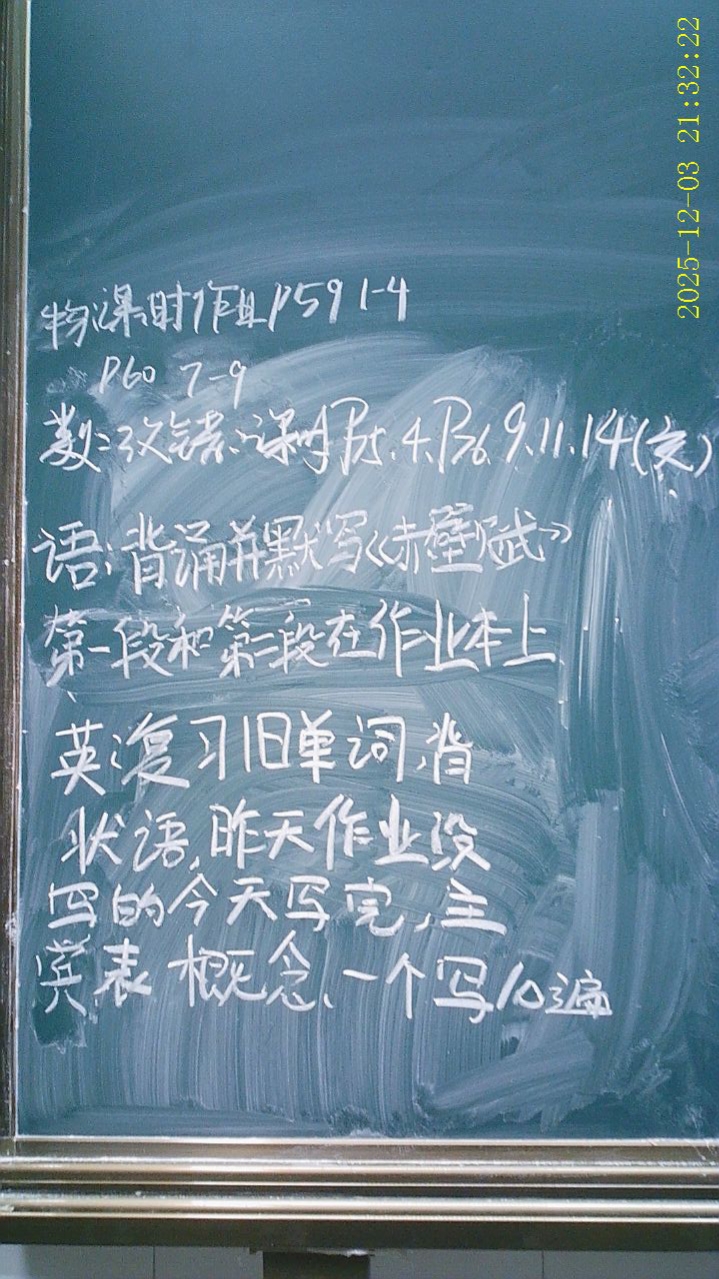 2025-12-03 21:32:22
物:课时作业P59 1-4
P60 7-9
数:改错、课时P75.4.P76.9.11.14(交)
语:背诵并默写《赤壁赋》
第一段和第二段在作业本上
英:复习旧单词,背
状语,昨天作业没
写的今天写完,主
宾表 概念、一个写10遍